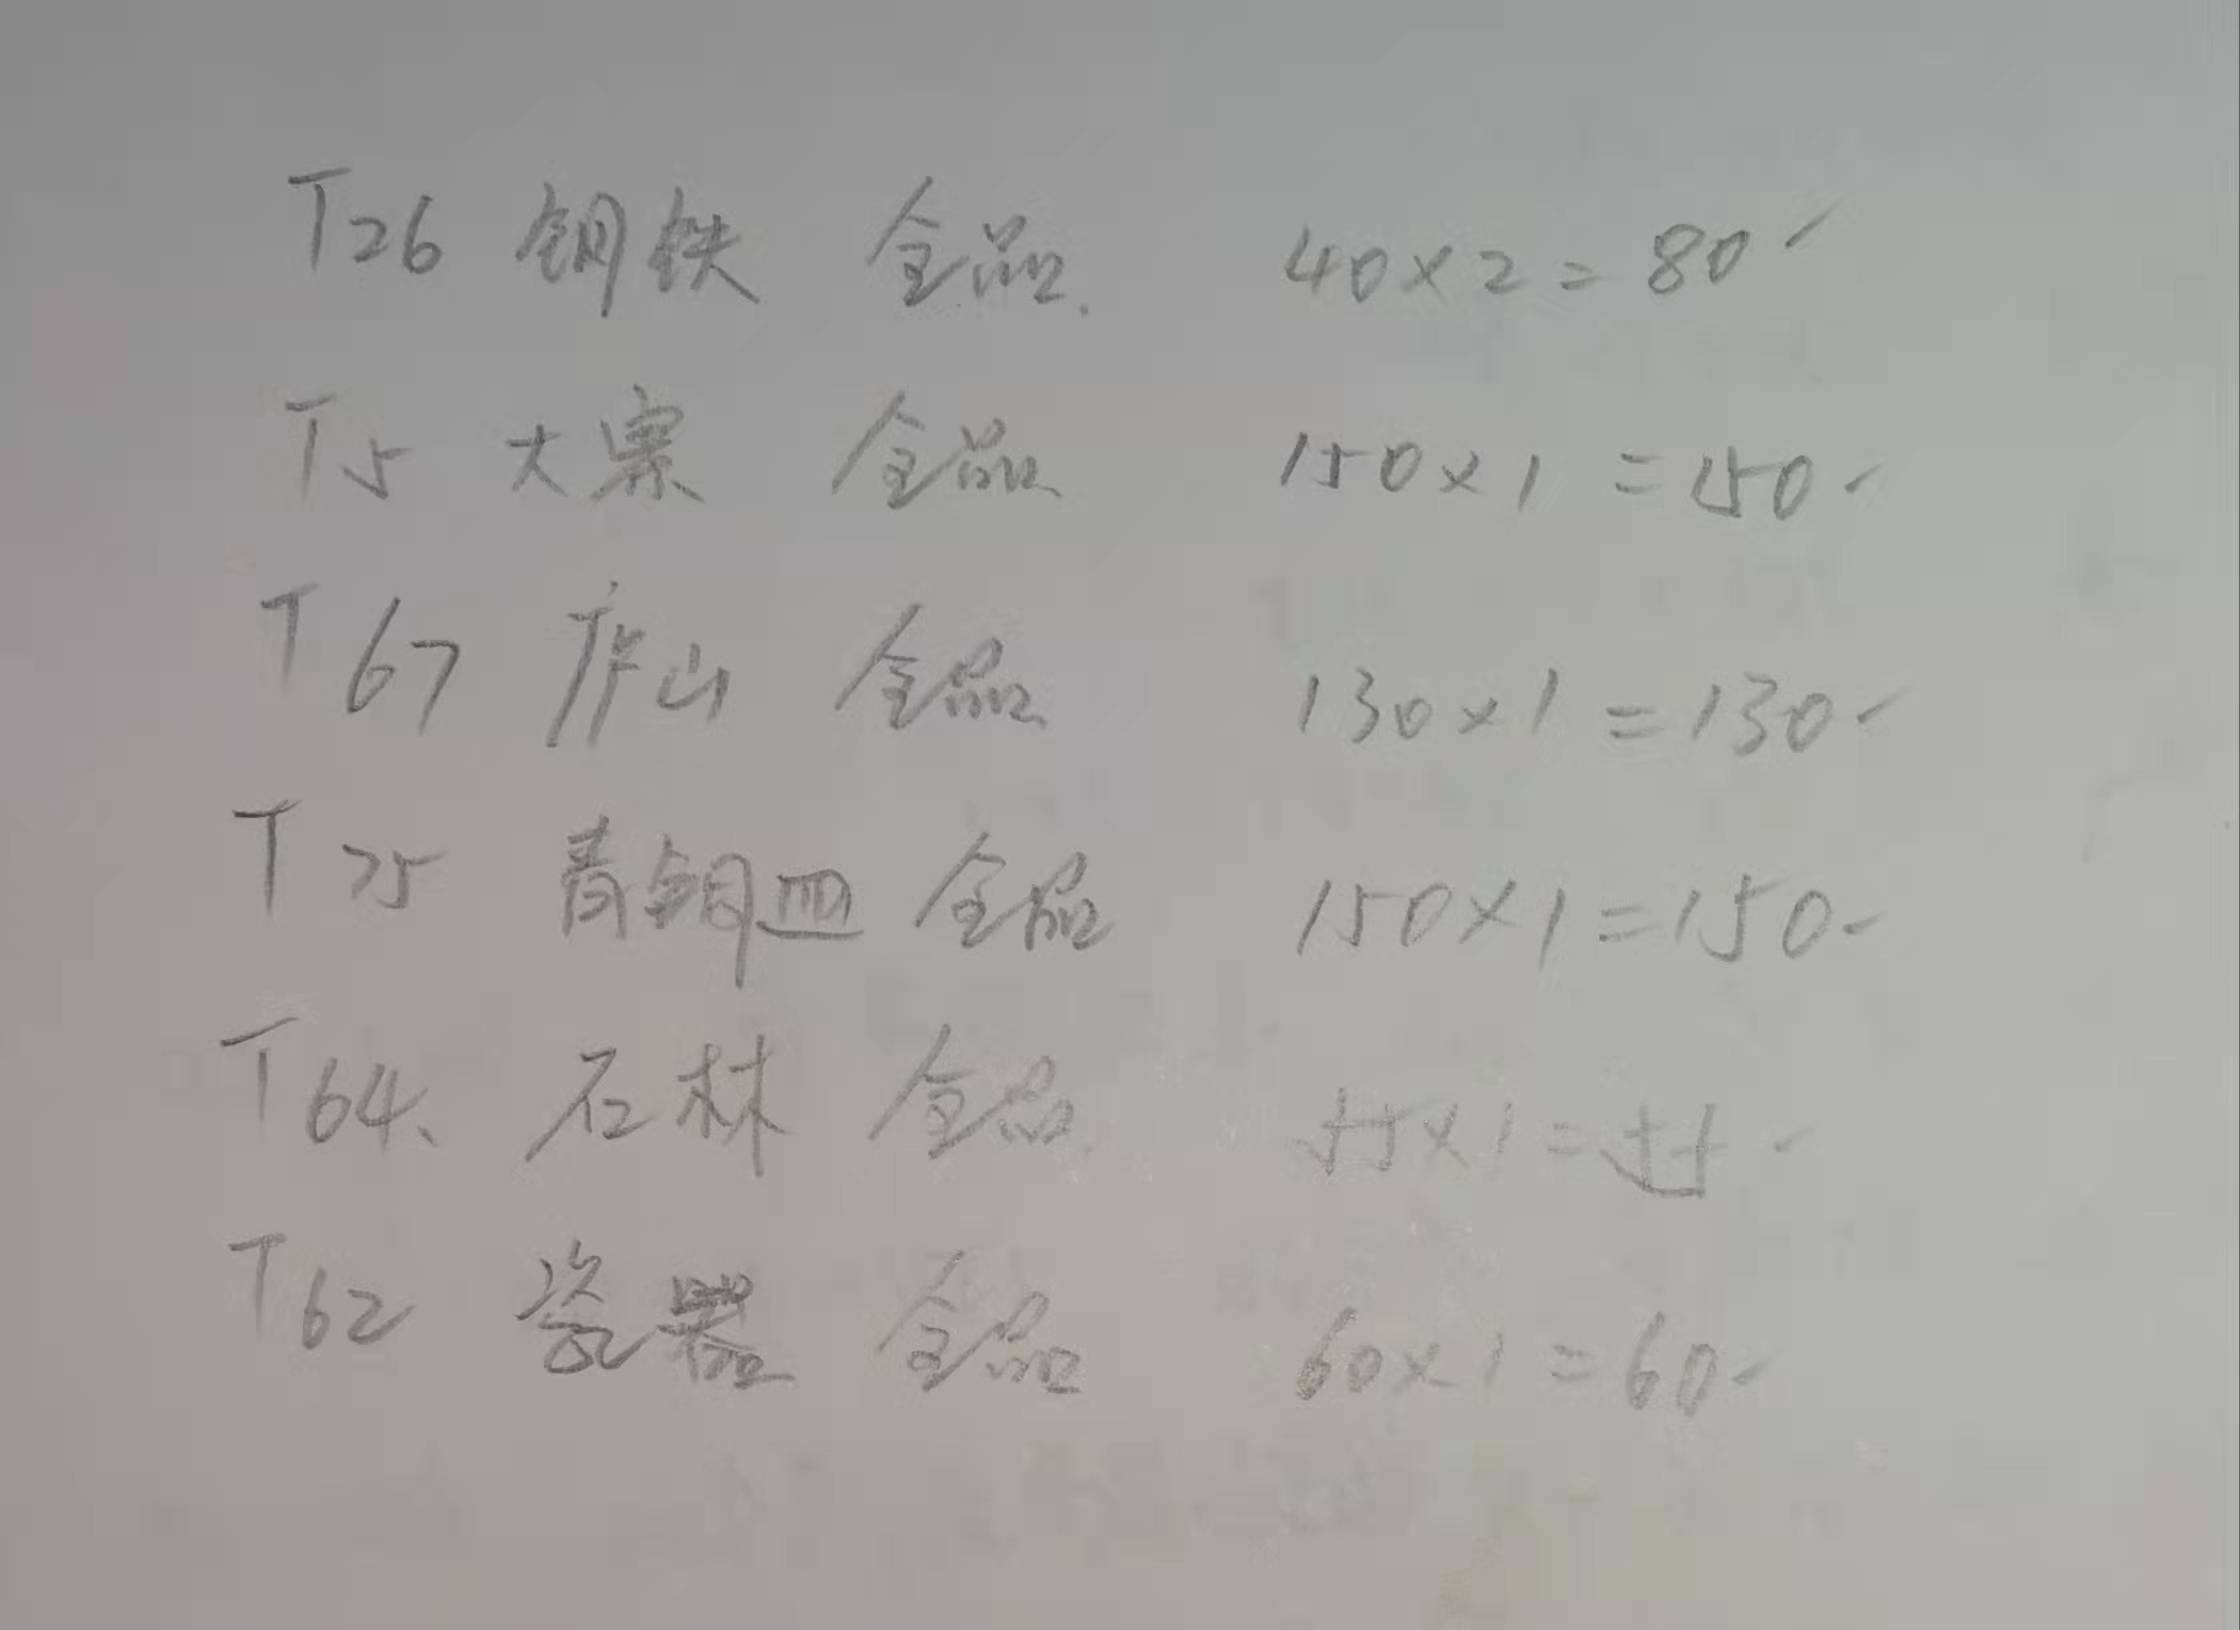 T26 钢铁 全品. 40×2=80-
T5 大寨 全品 150×1=150-
T67 庐山 全品 130×1=130-
T75 青铜皿 全品 150×1=150-
T64、石林 全品 55×1=55-
T62 瓷器 全品 60×1=60-